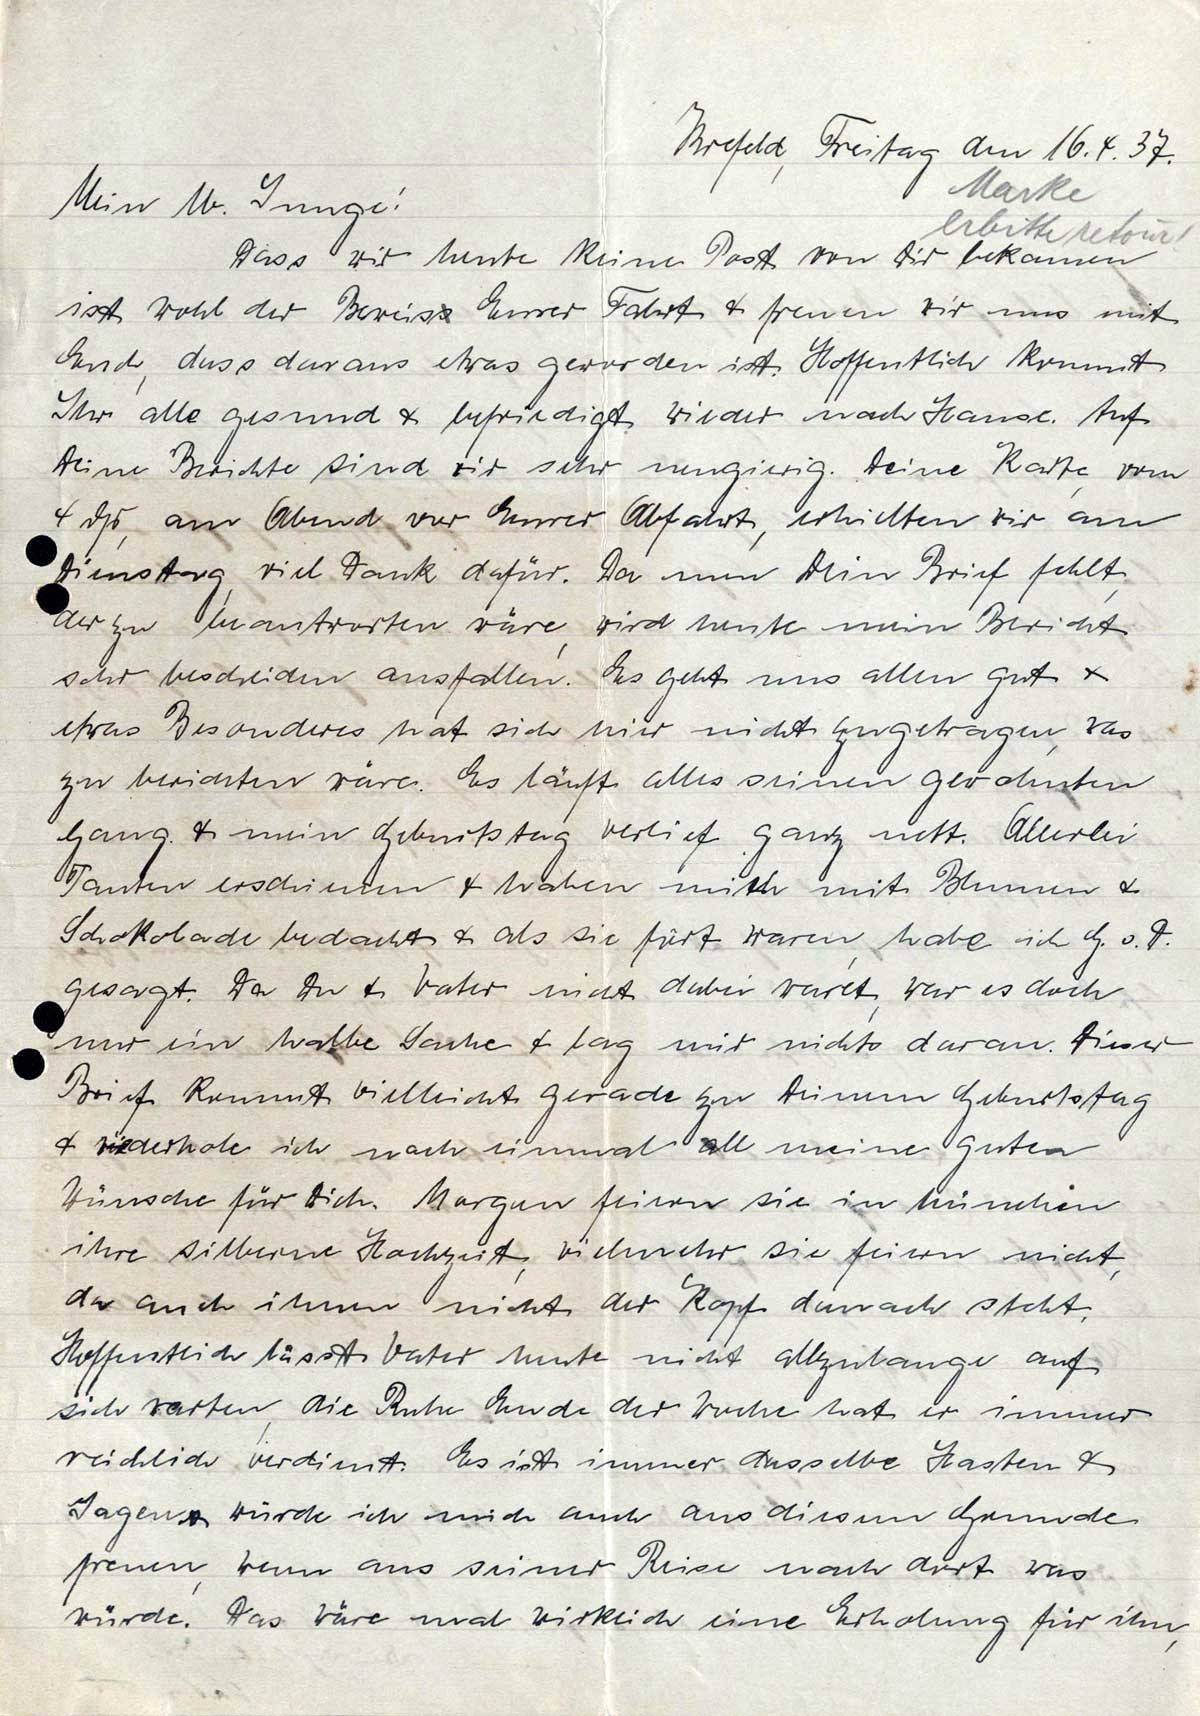 Krefeld, Freitag den 16.4.37.
Marke
erbitte retour!
Mein lb. Junge!
Dass wir heute keine Post von Dir bekamen
ist wohl der Beweiss Eurer Fahrt & freuen wir uns mit
Euch, dass daraus etwas geworden ist. Hoffentlich kommt
Ihr alle gesund & befriedigt wieder nach Hause. Auf
Deine Berichte sind wir sehr neugierig. Deine Karte, vom
4 ds, am Abend vor Eurer Abfahrt, erhielten wir am
Dienstag, viel Dank dafür. Da nun Dein Brief fehlt,
der zu beantworten wäre, wird heute mein Bericht
sehr bescheiden ausfallen. Es geht uns allen gut &
etwas Besonderes hat sich hier nicht zugetragen, was
zu berichten wäre. Es läuft alles seinen gewohnten
Gang & mein Geburtstag verlief ganz nett. Allerlei
Tanten erschienen & haben mich mit Blumen &
Schokolade bedacht & als sie fort waren, habe ich G. s. D.
gesagt. Da Du & Vater nicht dabei waret, war es doch
nur ein halbe Sache & lag mir nichts daran. Dieser
Brief kommt vielleicht gerade zu Deinem Geburtstag
& wiederhole ich noch einmal all meine guten
Wünsche für Dich. Morgen feiern sie in München
ihre silberne Hochzeit, vielmehr sie feiern nicht,
da auch ihnen nicht der Kopf danach steht.
Hoffentlich lässt Vater heute nicht allzulange auf
sich warten, die Ruhe Ende der Woche hat er immer
reichlich verdient. Es ist immer dasselbe Hasten &
Jagen & würde ich mich auch aus diesem Grunde
freuen, wenn aus seiner Reise nach dort was
würde. Das wäre mal wirklich eine Erholung für ihn,